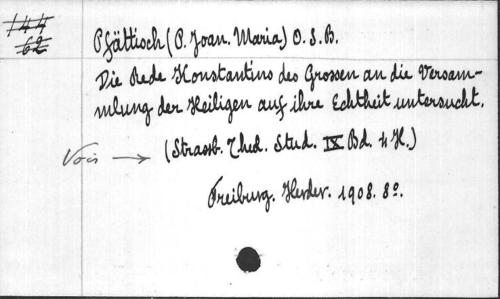 144
62
Pfättisch (P. Joan. Maria) O. S. B.
Die Rede Konstantins des Grossen an die Versam-
mlung der Heiligen auf ihre Echtheit untersucht.
Vois → (Strassb. Theol. Stud. IX Bd. 4 H.)
Freiburg. Herder. 1908. 8º.